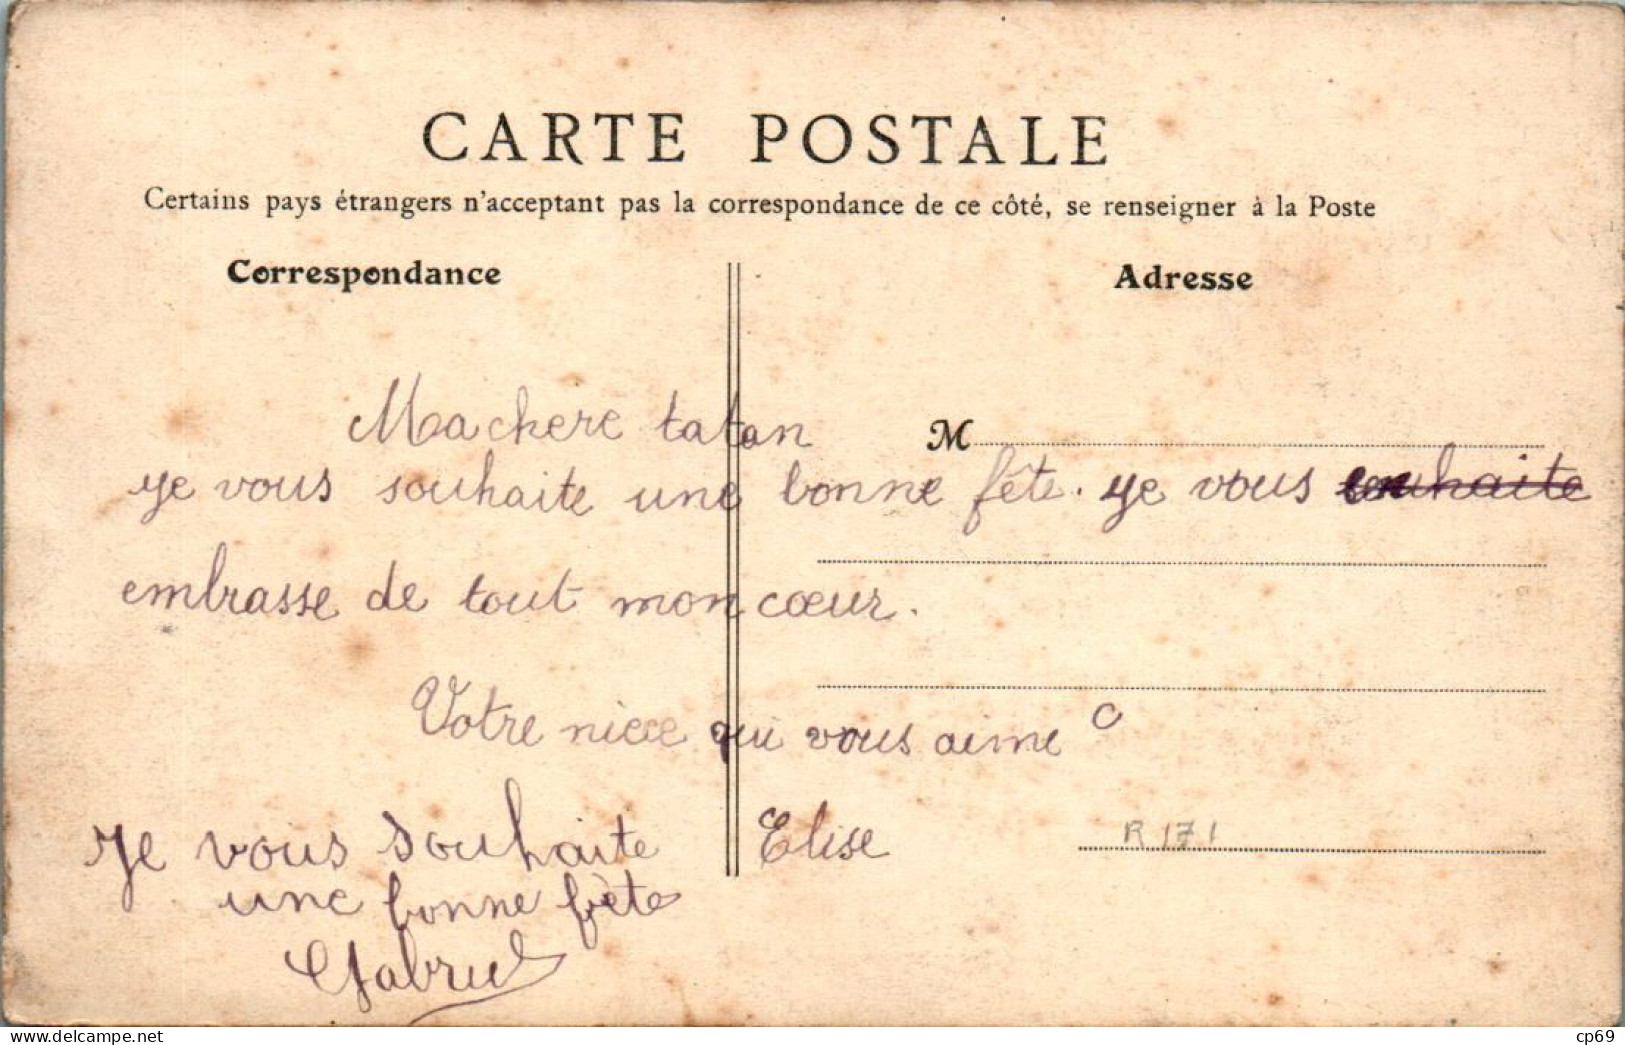 CARTE POSTALE
Certains pays étrangers n'acceptant pas la correspondance de ce côté, se renseigner à la Poste
Correspondance
Adresse
Ma chere tatan
M
je vous souhaite une bonne fête. je vous souhaite
embrasse de tout mon cœur.
Votre niece qui vous aime
Elise
Je vous souhaite
une bonne fète
Gabriel
R 171
delcampe.net
cp69